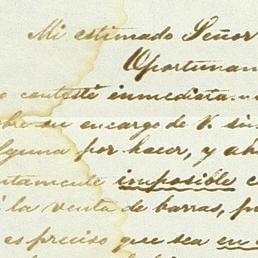 Mi estimado Señor
Oportunam
contesté inmediata
su encargo de V. sin
lguna por hacer, y ah
ntamente imposible
la venta de barras, p
es preciso que sea en